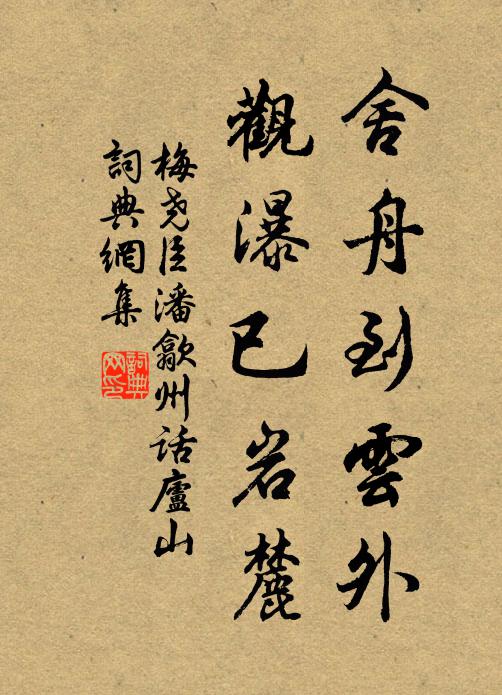 舍舟到雲外
觀瀑已岩麓
梅尧臣潘歙州话廬山
詞典網集